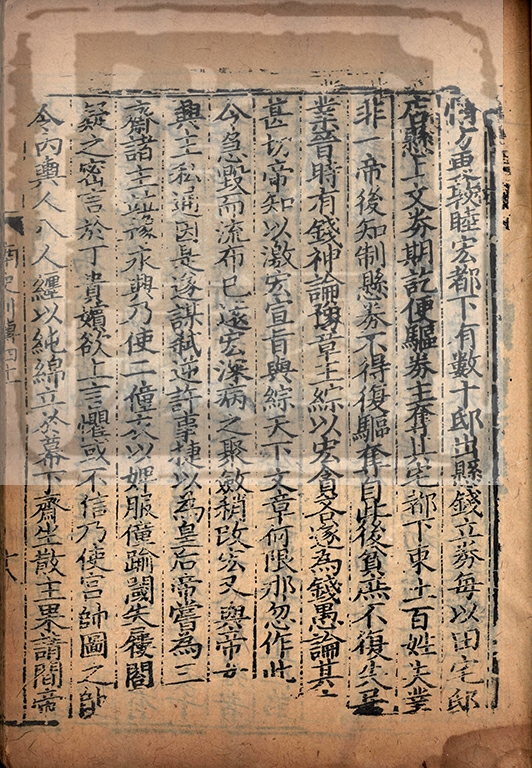 情方更敦睦宏都下有數十邸出縣錢立券每以田宅邸
店縣上文券期訖便驅券主奪其宅都下東土百姓失業
非一帝後知制縣券不得復驅奪自此後貧庶不復失居
業晉時有錢神論豫章王綜以宏貪吝遂為錢愚論其
甚切帝知以激宏宣旨與綜天下文章何限那忽作此
令急毀而流布已遠宏深病之聚斂稍改宏又與帝女
興主私通因是遂謀弒逆許事捷以為皇后帝嘗為三
齋諸主並豫永興乃使二僮衣以婢服僮踰閾失屨閤
疑之密言於丁貴嬪欲上言懼或不信乃使宮帥圖之帥
令內輿人八人纏以純綿立於幕下齋坐散主果請間帝